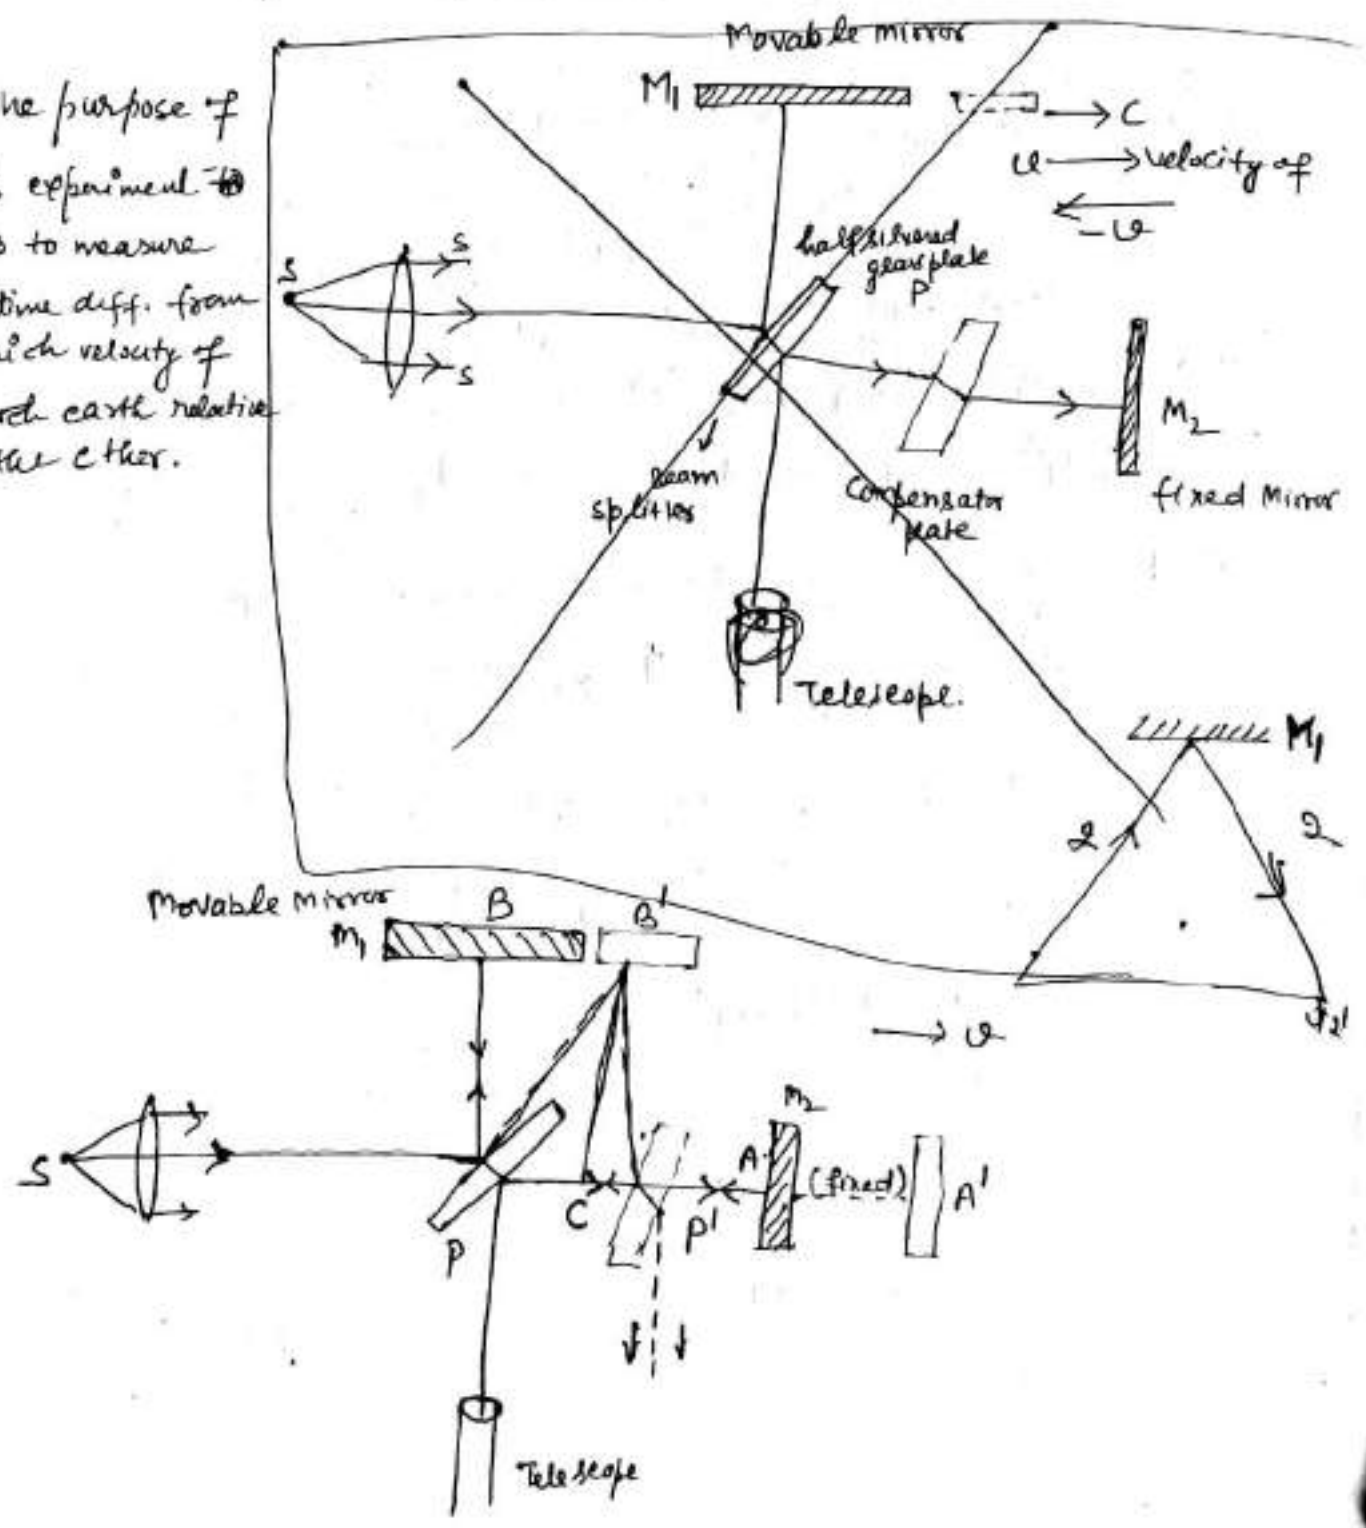 he purpose of
experiment
s to measure
time diff. from
ich velocity of
earth relative
the ether.
Movable mirror
M1
C
u → velocity of
-v
half silvered
glass plate
P
S
s
s
M2
fixed Mirror
beam
splitter
Compensator
plate
Telescope.
M1
2
2
2'
Movable Mirror
M1
B
B'
v
M2
S
A
(fixed)
A'
C
P'
P
Telescope